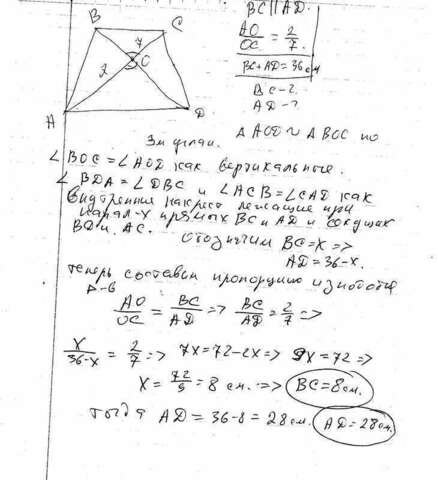 B C
7
2 O
A D
BC||AD.
AO/OC = 2/7.
BC+AD=36 см
BC-?
AD-?
△ AOD ~ △ BOC по
3м углам.
∠ BOC = ∠AOD как вертикальные.
∠ BDA = ∠DBC и ∠ACB=∠CAD как
внутренние накрест лежащие при
парал-х прямых BC и AD и секущих
BD и AC.
обозначим BC=x =>
AD=36-x.
теперь составим пропорцию из подобия
AO/OC = BC/AD => BC/AD = 2/7 =>
x/36-x = 2/7 => 7x=72-2x => 9x=72 =>
x = 72/9 = 8 см. => BC=8см.
тогда AD = 36-8 = 28см. AD=28см.